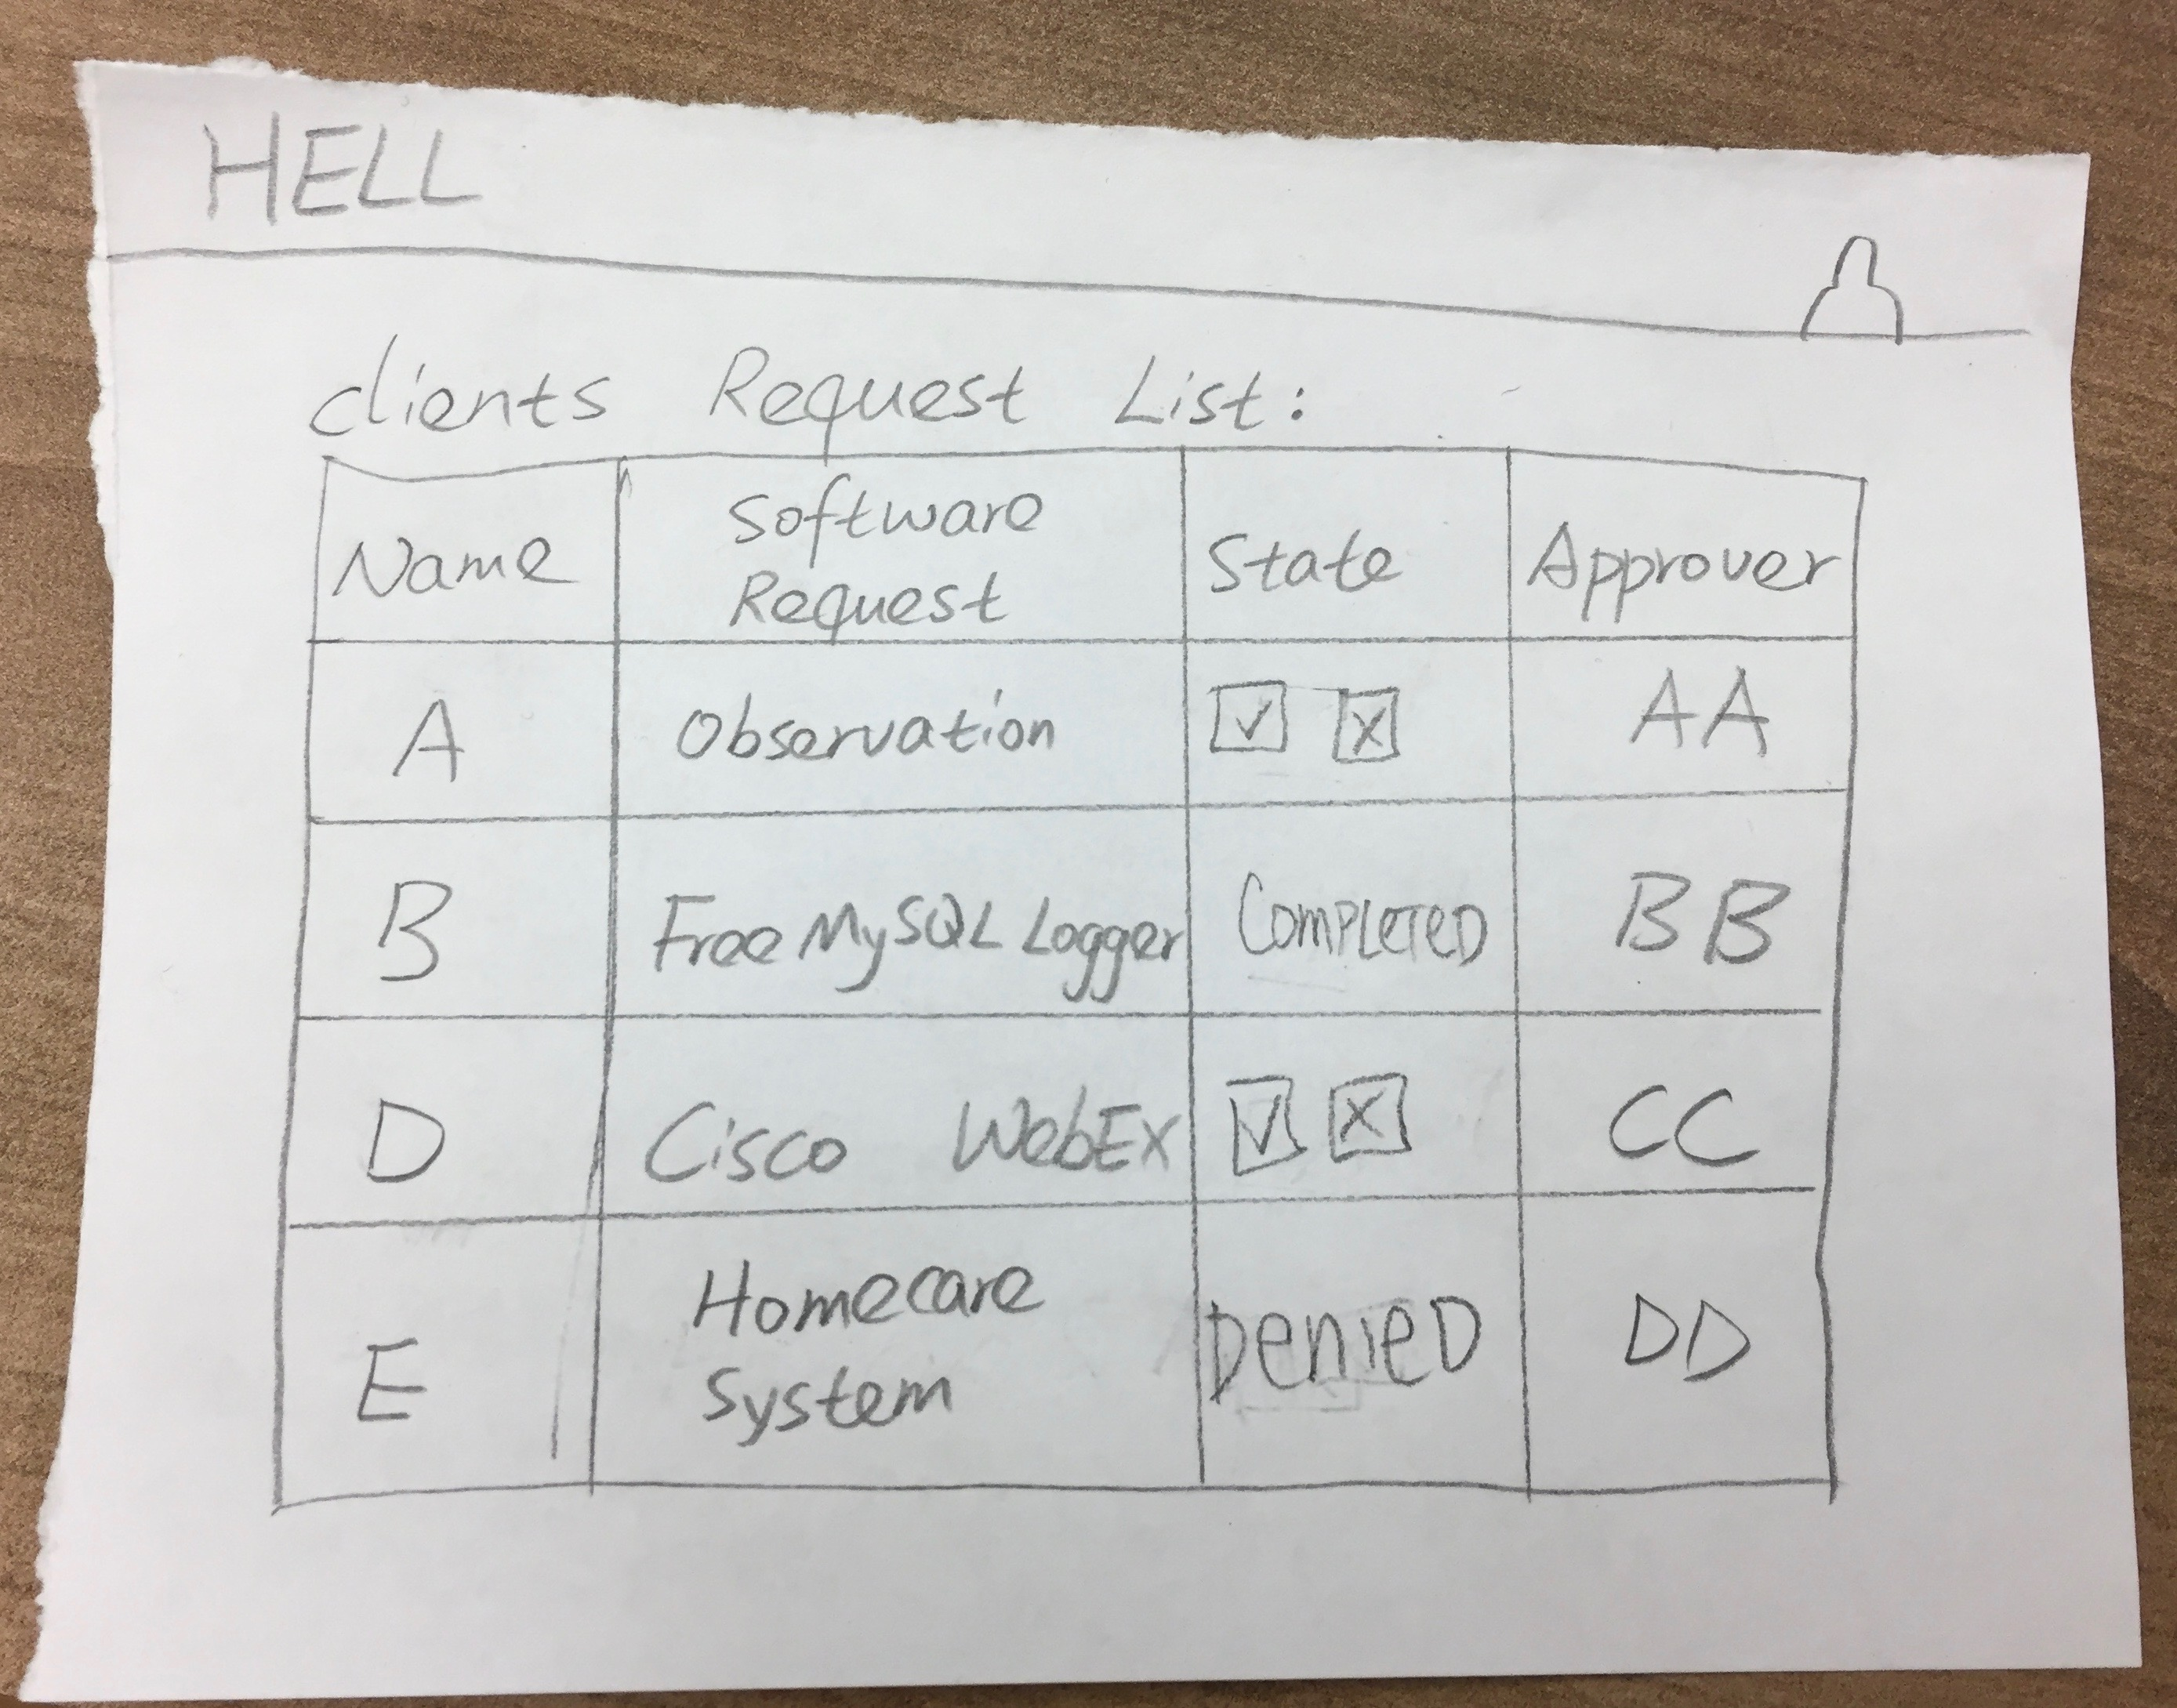 HELL
clients Request List:
Name Software Request State Approver
A Observation ☑ ☒ AA
B Free MySQL Logger COMPLETED BB
D Cisco WebEx ☑ ☒ CC
E Homecare System DenieD DD